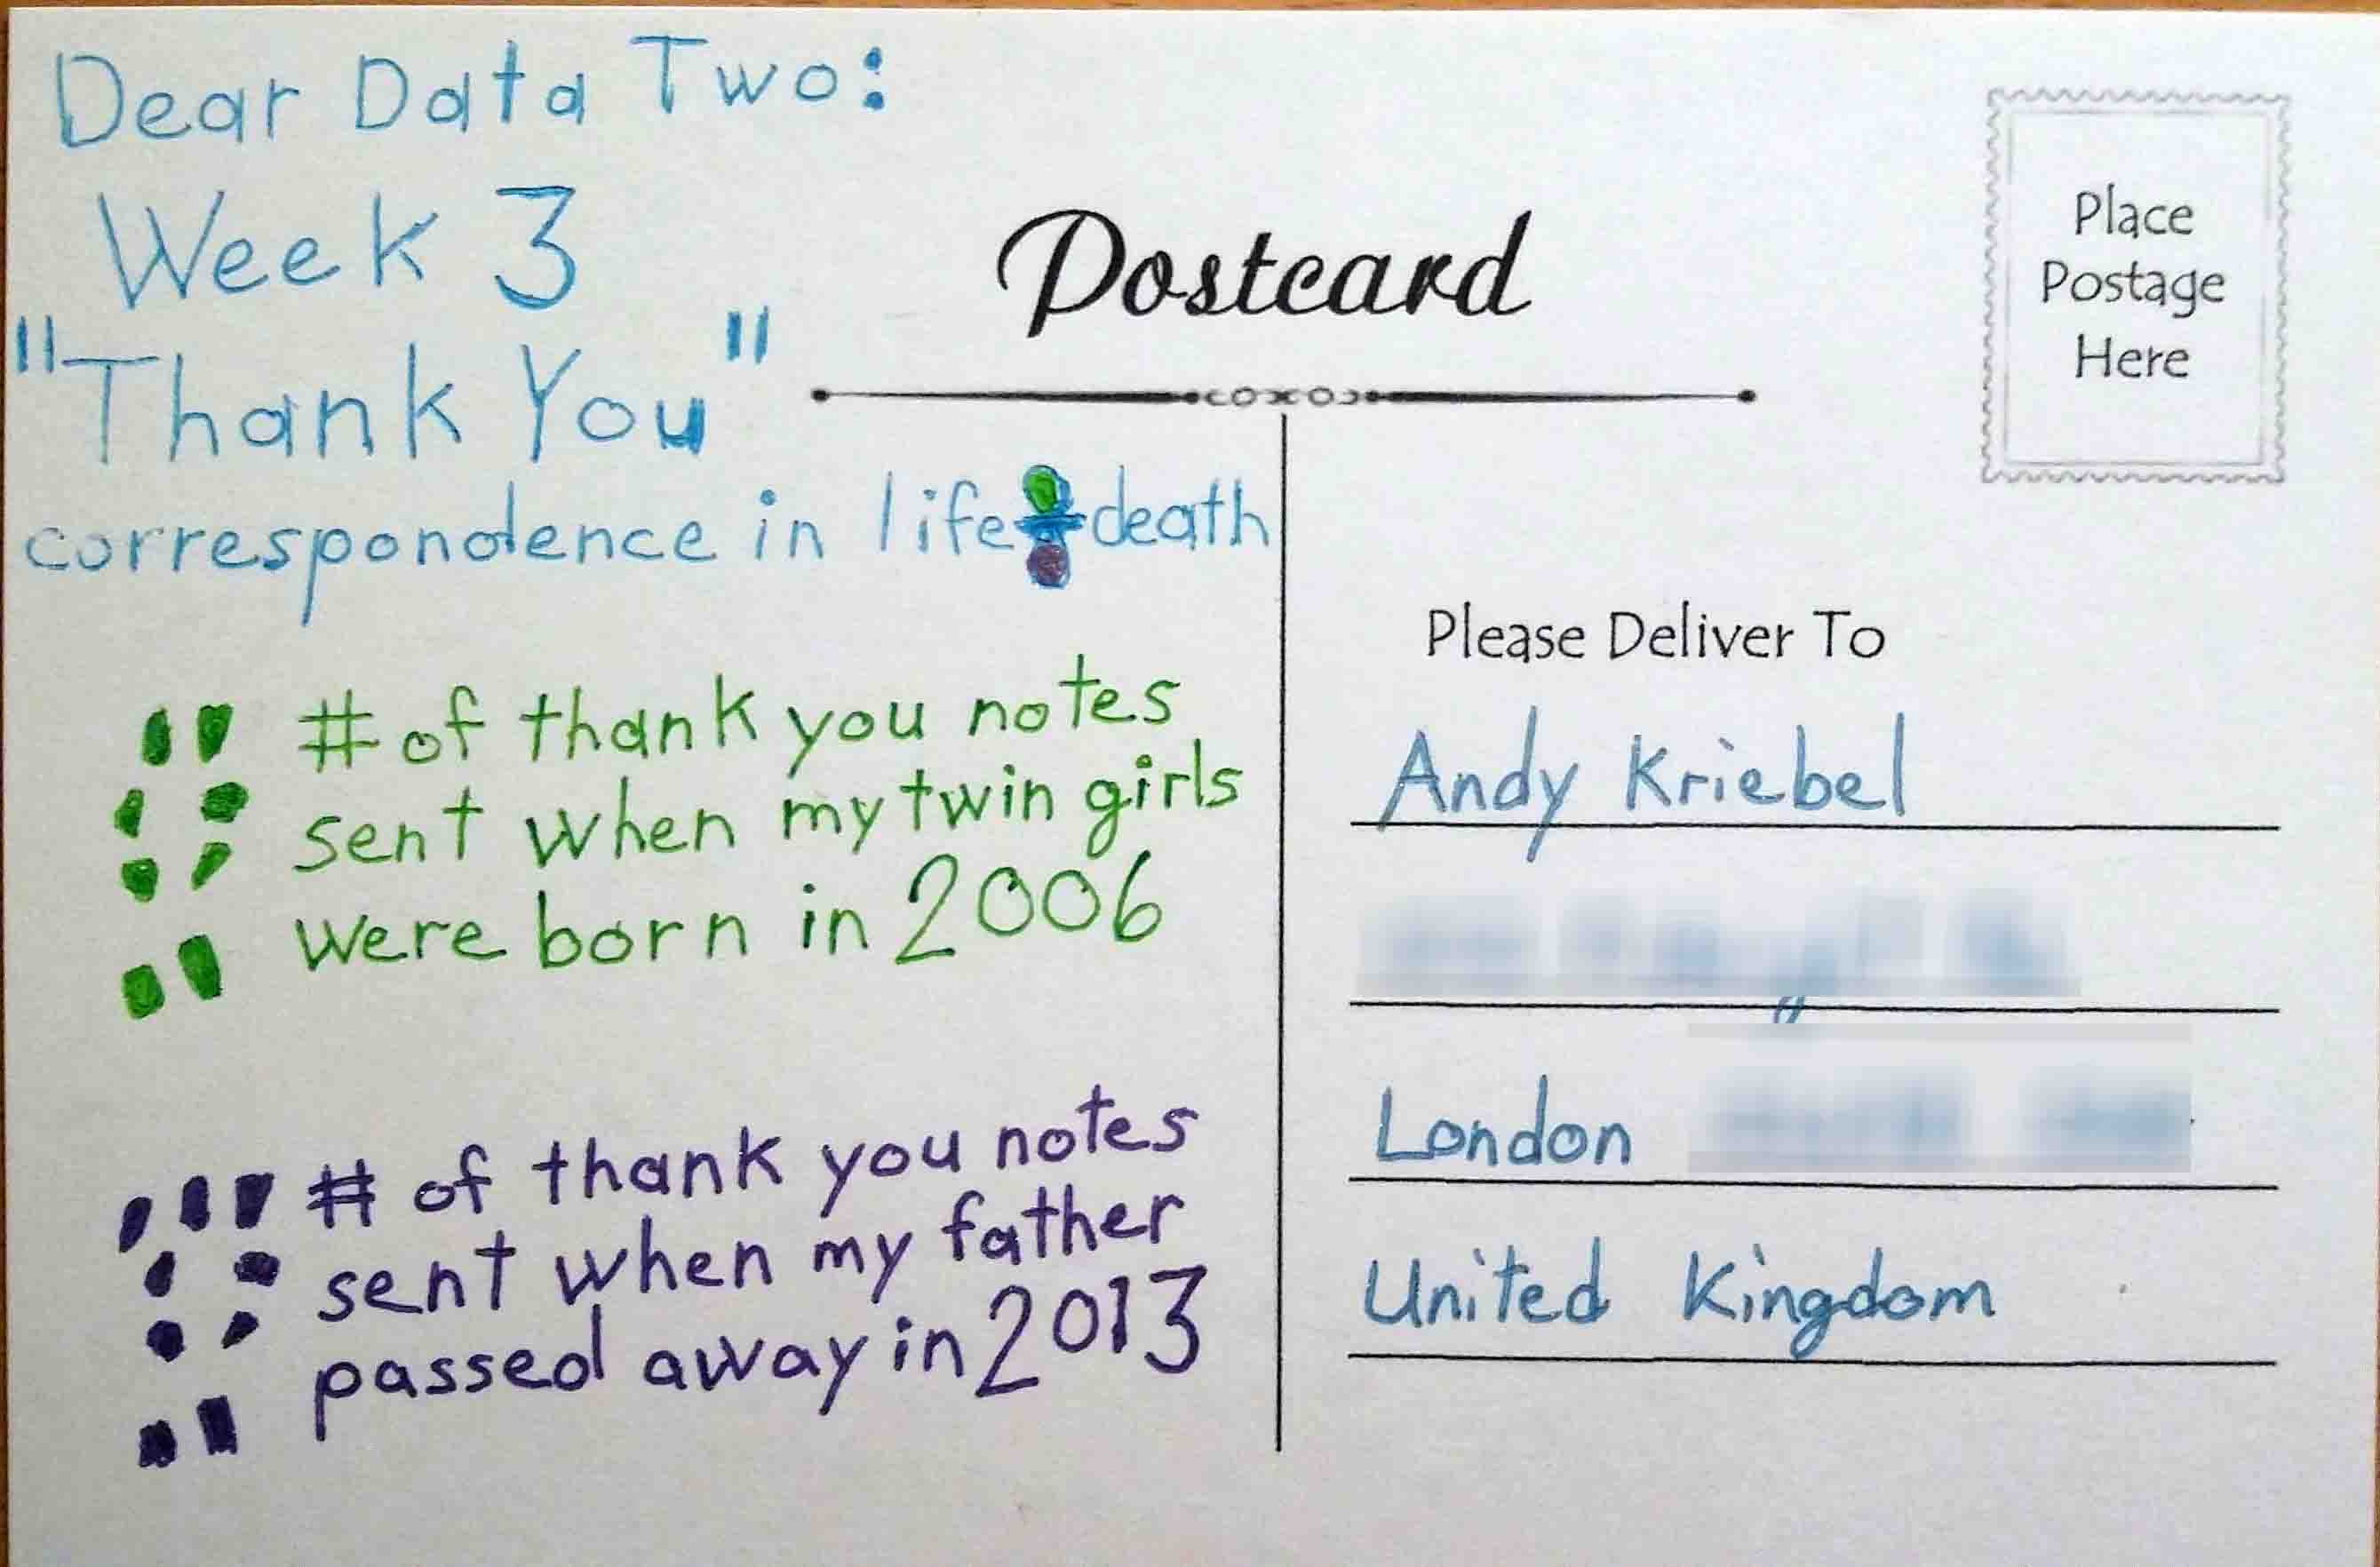 Dear Data Two:
Week 3
"Thank You"
correspondence in life & death
# of thank you notes
sent when my twin girls
were born in 2006
# of thank you notes
sent when my father
passed away in 2013
Postcard
Place
Postage
Here
Please Deliver To
Andy Kriebel
London
United Kingdom